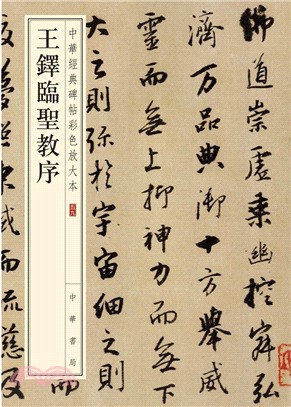 佛道崇虛乘幽控寂弘
濟万品典御十方舉威
靈而無上抑神力而無下
大之則弥於宇宙細之則
中華經典碑帖彩色放大本
中華書局
王鐸臨聖教序
而流慈